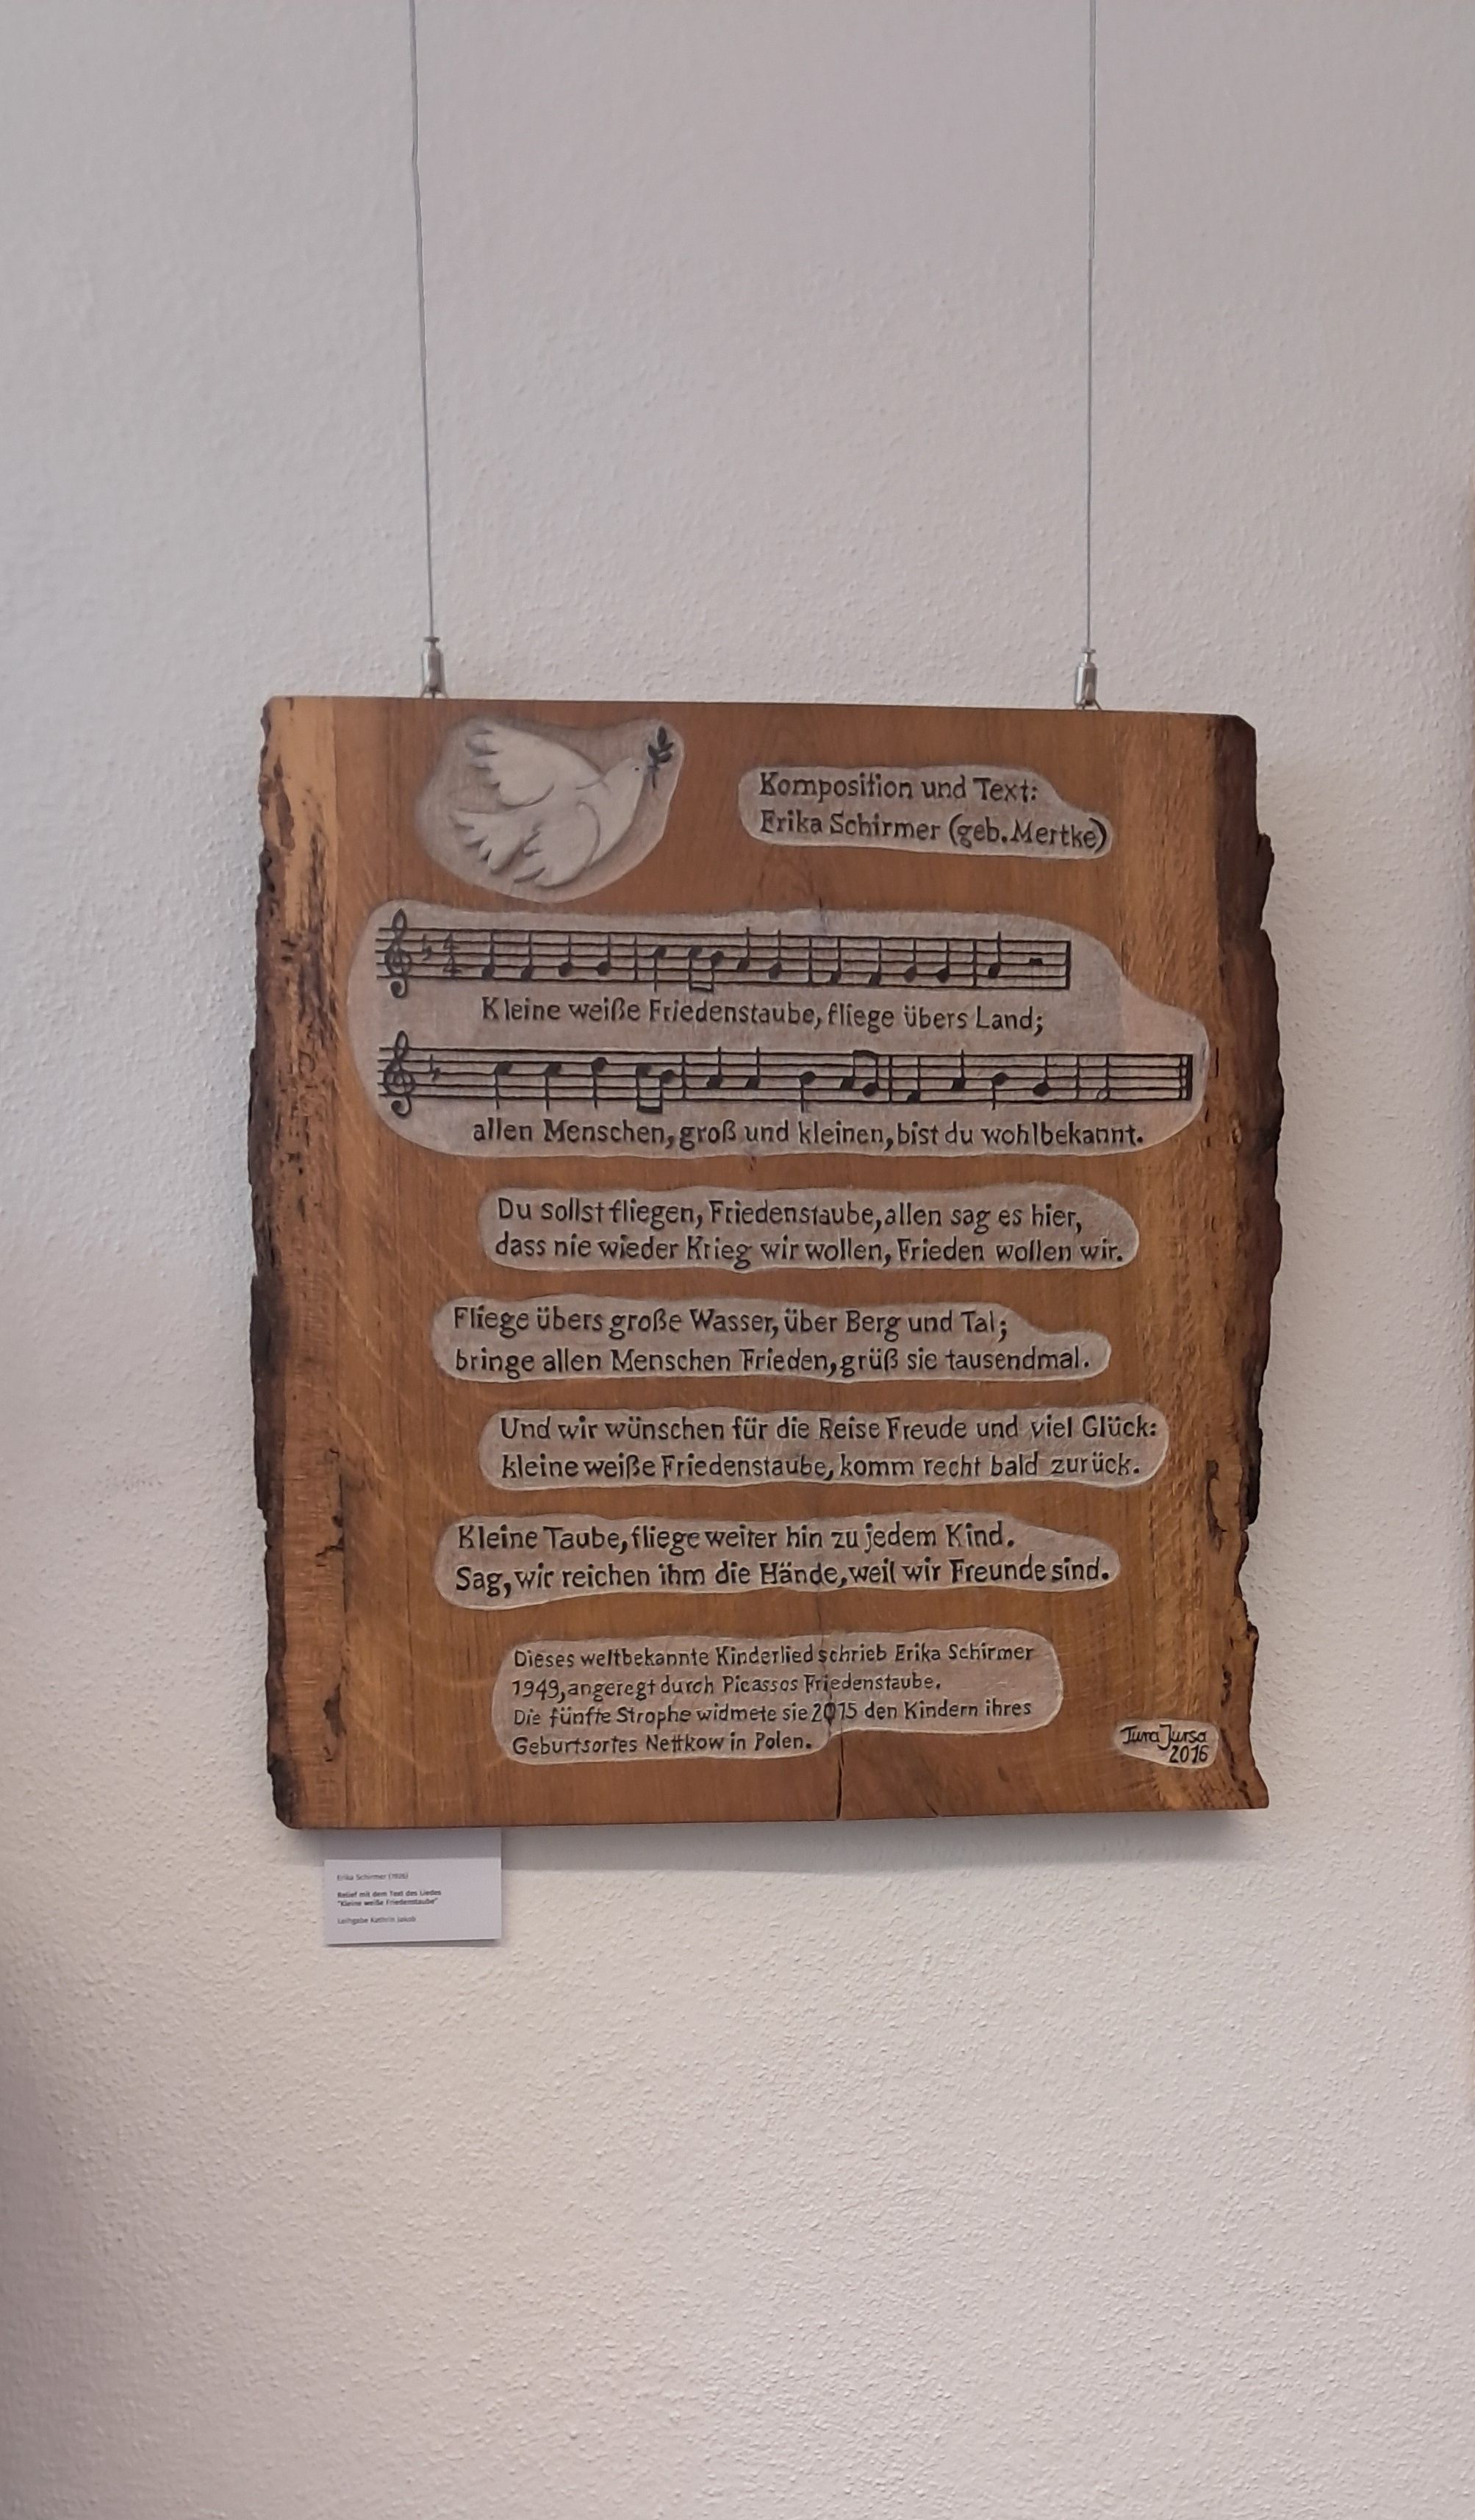 Komposition und Text:
Erika Schirmer (geb. Mertke)
Kleine weiße Friedenstaube, fliege übers Land;
allen Menschen, groß und kleinen, bist du wohlbekannt.
Du sollst fliegen, Friedenstaube, allen sag es hier,
dass nie wieder Krieg wir wollen, Frieden wollen wir.
Fliege übers große Wasser, über Berg und Tal;
bringe allen Menschen Frieden, grüß sie tausendmal.
Und wir wünschen für die Reise Freude und viel Glück:
kleine weiße Friedenstaube, komm recht bald zurück.
Kleine Taube, fliege weiter hin zu jedem Kind.
Sag, wir reichen ihm die Hände, weil wir Freunde sind.
Dieses weltbekannte Kinderlied schrieb Erika Schirmer
1949, angeregt durch Picassos Friedenstaube.
Die fünfte Strophe widmete sie 2015 den Kindern ihres
Geburtsortes Nettkow in Polen.
Tura Jursa
2016
Erika Schirmer (1926)
Relief mit dem Text des Liedes
"Kleine weiße Friedenstaube"
Leihgabe Kathrin Jakob